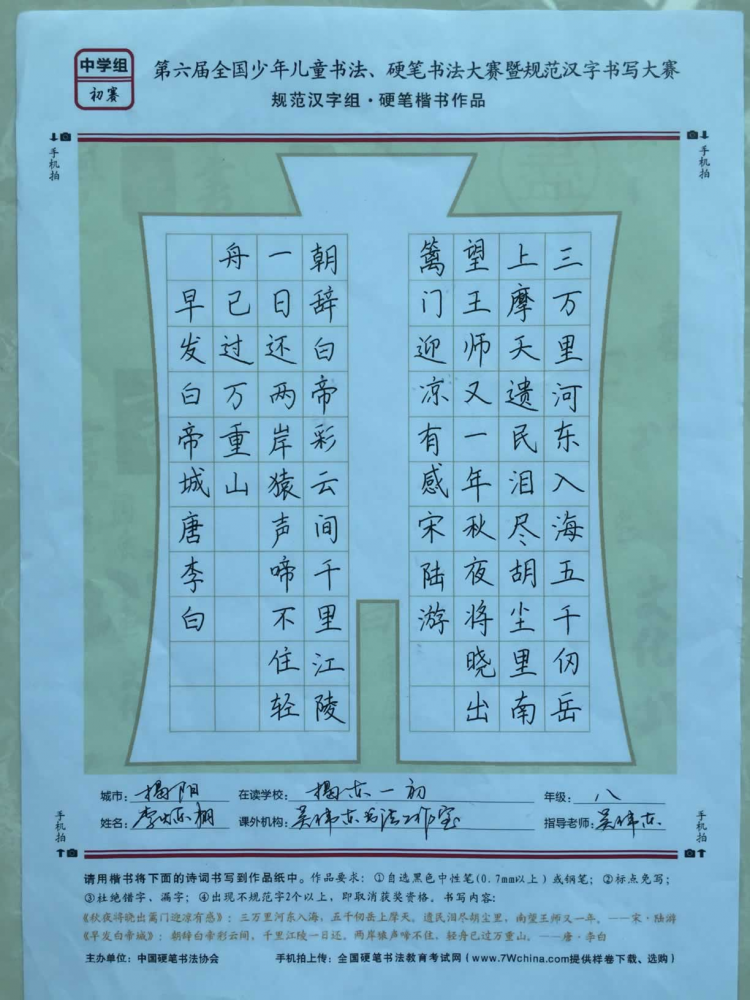 中学组
初赛
第六届全国少年儿童书法、硬笔书法大赛暨规范汉字书写大赛
规范汉字组·硬笔楷书作品
手机拍
手机拍
三万里河东入海五千仞岳
上摩天遗民泪尽胡尘里南
望王师又一年秋夜将晓出
篱门迎凉有感宋陆游
朝辞白帝彩云间千里江陵
一日还两岸猿声啼不住轻
舟已过万重山
早发白帝城唐李白
城市：揭阳 在读学校：揭东一初 年级：八
姓名：李 栩 课外机构：吴伟东书法工作室 指导老师：吴伟东
手机拍
手机拍
请用楷书将下面的诗词书写到作品纸中。作品要求：①自选黑色中性笔(0.7mm以上)或钢笔；②标点免写；
③杜绝错字、漏字；④出现不规范字2个以上，即取消获奖资格。书写内容：
《秋夜将晓出篱门迎凉有感》：三万里河东入海，五千仞岳上摩天。遗民泪尽胡尘里，南望王师又一年。——宋·陆游
《早发白帝城》：朝辞白帝彩云间，千里江陵一日还。两岸猿声啼不住，轻舟已过万重山。——唐·李白
主办单位：中国硬笔书法协会 手机拍上传：全国硬笔书法教育考试网（www.7Wchina.com提供样卷下载、选购）